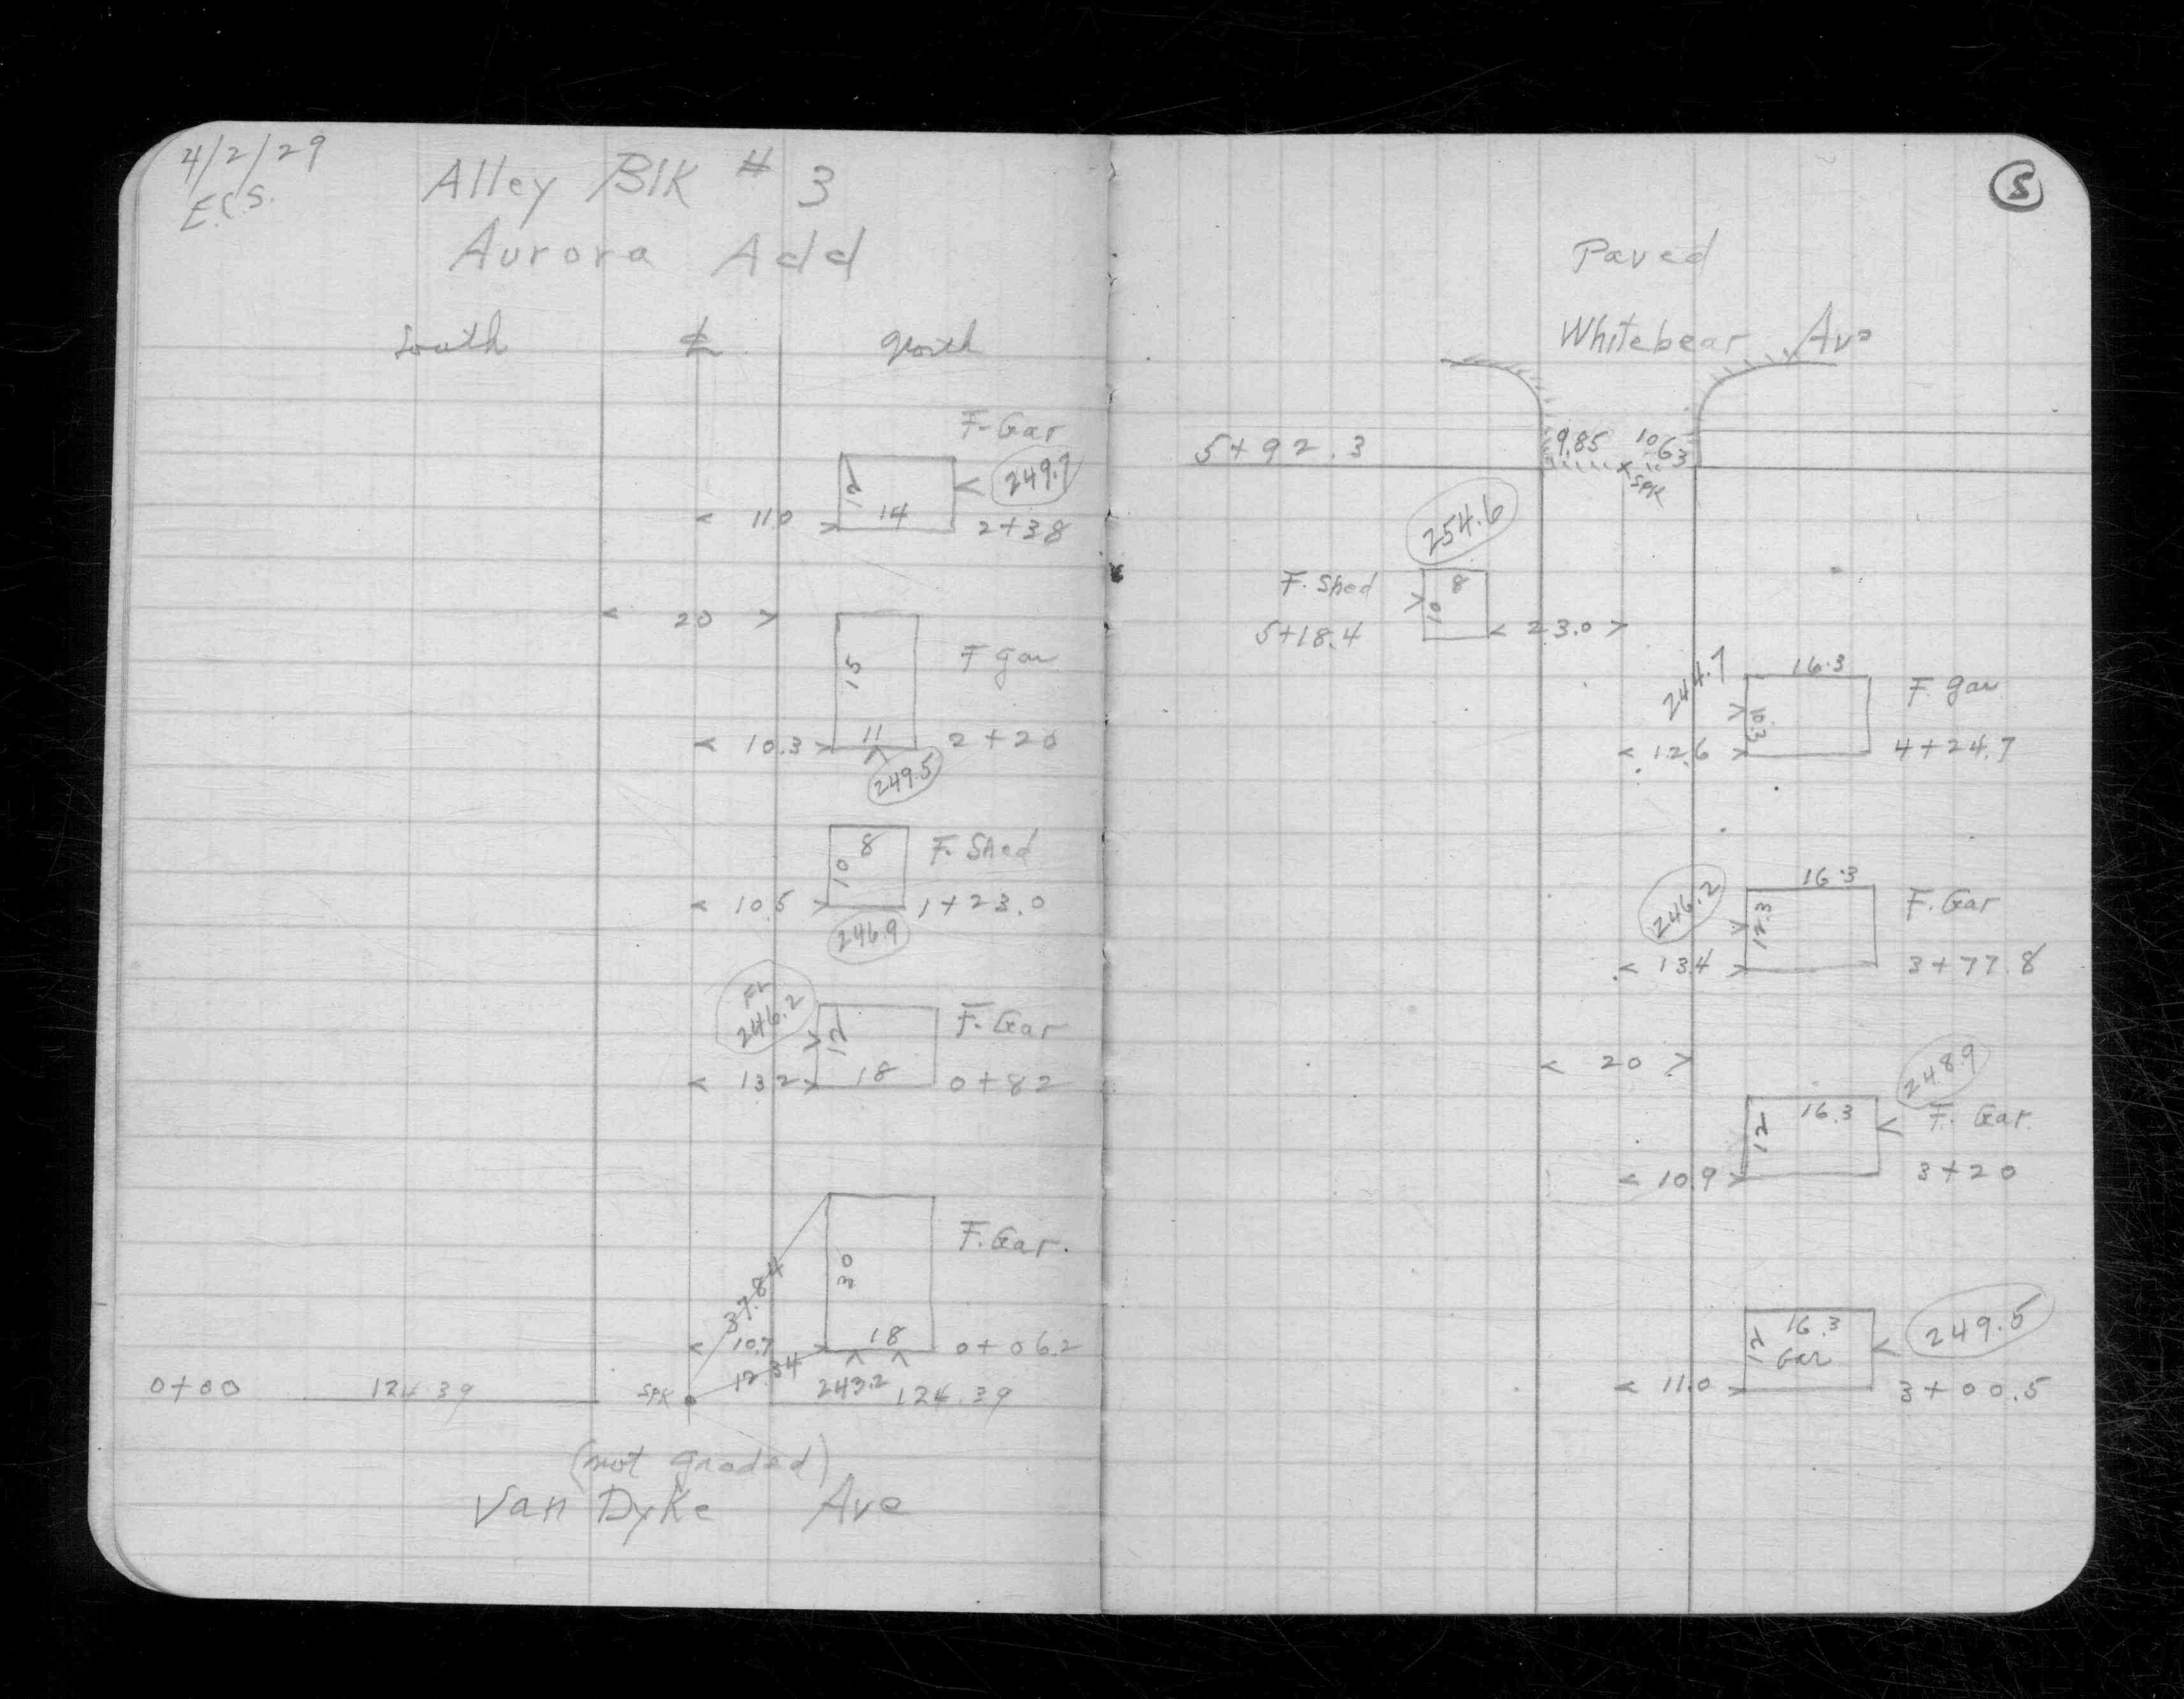 4/2/29
E.C.S.
Alley Blk # 3
Aurora Add
South ℄ North
F-Gar
12 14 < 249.7
< 11.0 > 2+38
< 20 >
15 F gar
< 10.3 > 11 2+20
249.5
8
10 F. Shed
< 10.5 > 1+23.0
246.9
FL
246.2 > 12 F. Gar
< 13.2 > 18 0+82
30 F. Gar.
37.84
< 10.7 > 18 0+06.2
12.34
243.2
0+00 124.39 SPK 124.39
(not graded)
Van Dyke Ave
5
Paved
Whitebear Ave
5+92.3 9.85 10.63
SPK
254.6
F. Shed > 8
10
5+18.4 < 23.0 >
16.3
244.7 > 10.3 F. gar
< 12.6 > 4+24.7
16.3
246.2 > 12.3 F. Gar
< 13.4 > 3+77.8
< 20 >
248.9
12 16.3 < F. Gar.
< 10.9 > 3+20
12 16.3 < 249.5
Gar
< 11.0 > 3+00.5